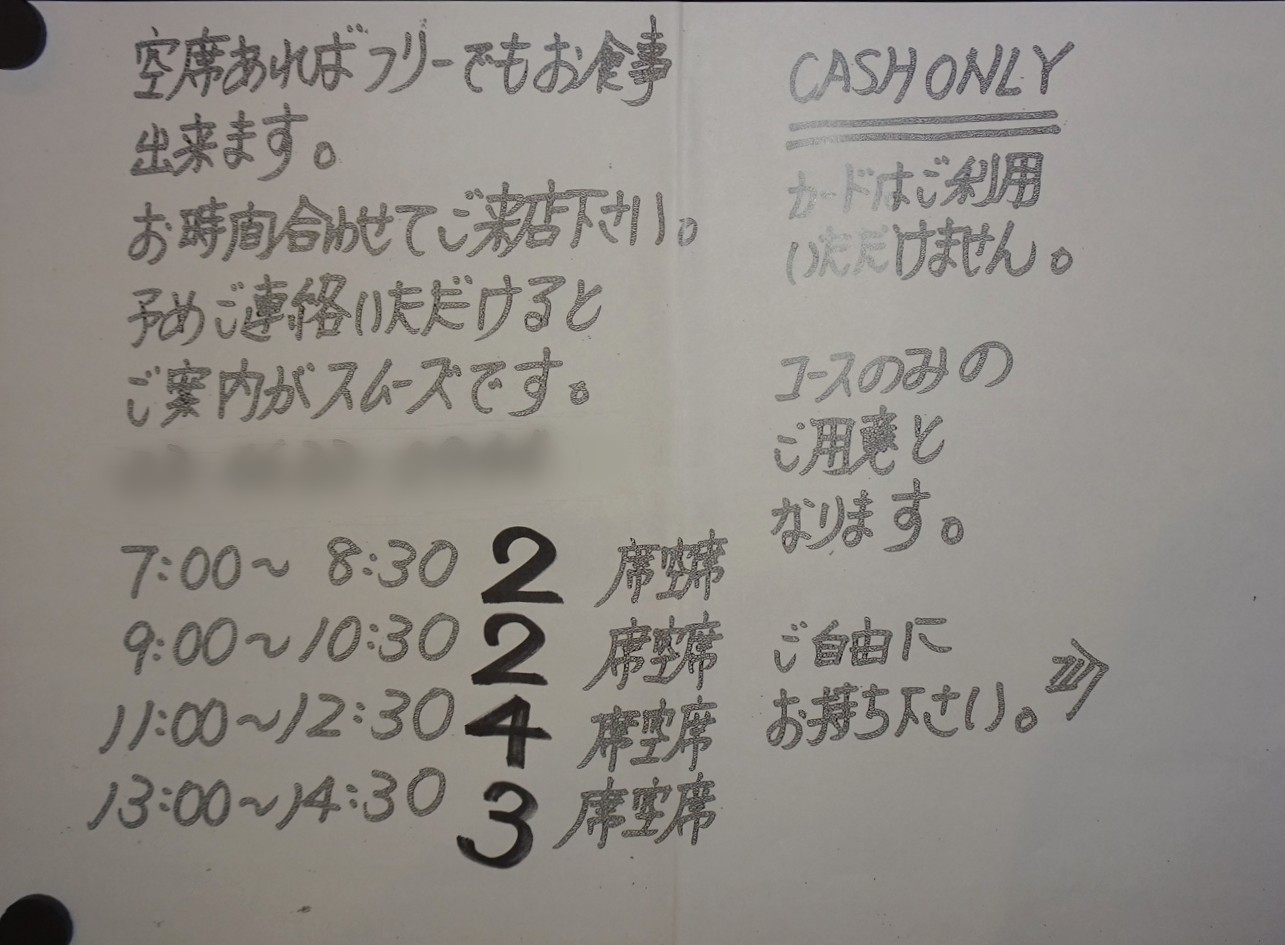 空席あればフリーでもお食事
出来ます。
お時間合わせてご来店下さい。
予めご連絡いただけると
ご案内がスムーズです。
7:00～8:30 2 席空席
9:00～10:30 2 席空席
11:00～12:30 4 席空席
13:00～14:30 3 席空席
CASH ONLY
カードはご利用
いただけません。
コースのみの
ご用意と
なります。
ご自由に
お持ち下さい。